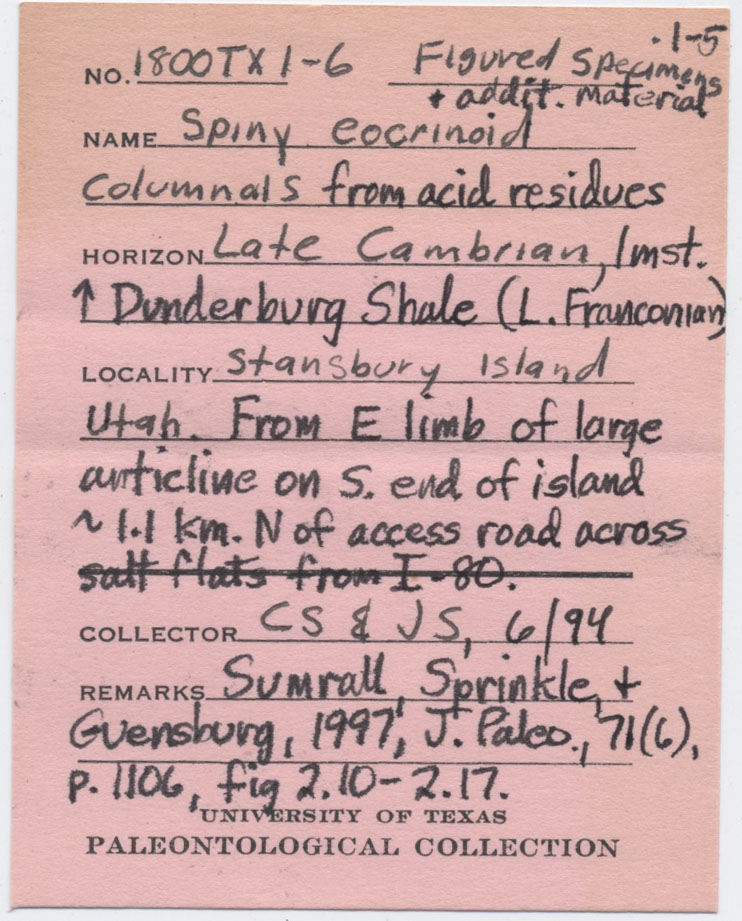 .1-5
NO. 1800TX1-6 Figured Specimens
+ addit. material
NAME Spiny eocrinoid
columnals from acid residues
HORIZON Late Cambrian, lmst.
↑ Dunderburg Shale (L. Franconian)
LOCALITY Stansbury Island
Utah. From E limb of large
anticline on S. end of island
~ 1.1 km. N of access road across
salt flats from I-80.
COLLECTOR CS & JS, 6/94
REMARKS Sumrall, Sprinkle, +
Guensburg, 1997, J. Paleo., 71(6),
p. 1106, fig 2.10-2.17.
UNIVERSITY OF TEXAS
PALEONTOLOGICAL COLLECTION